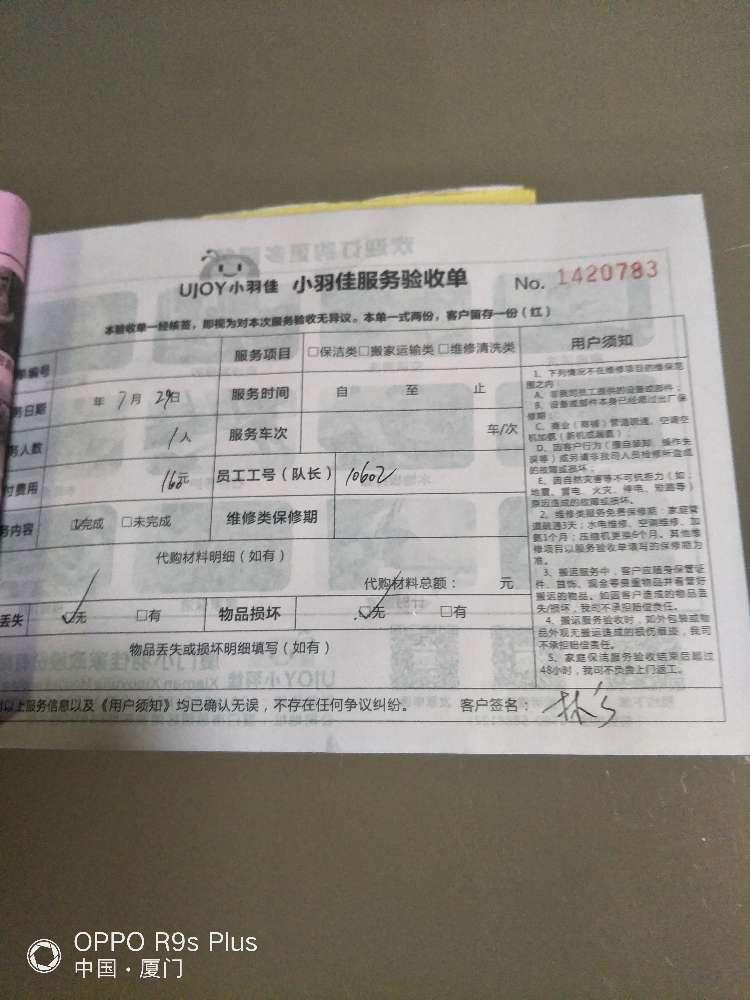 UJOY小羽佳 小羽佳服务验收单 No. 1420783
本验收单一经核签，即视为对本次服务验收无异议。本单一式两份，客户留存一份（红）
单编号 服务项目 □保洁类□搬家运输类□维修清洗类
务日期 年 7月 29日 服务时间 自 至 止
务人数 1人 服务车次 车/次
付费用 160元 员工工号（队长） 10602
务内容： ☑完成 □未完成 维修类保修期
代购材料明细（如有）
代购材料总额： 元
丢失 ☑无 □有 物品损坏 ☑无 □有
物品丢失或损坏明细填写（如有）
以上服务信息以及《用户须知》均已确认无误，不存在任何争议纠纷。 客户签名：
用户须知
1、下列情况不在维修项目的维保范
围之内
A、非我司员工提供的设备或部件；
B、设备或部件本身已经超过出厂保
修期；
C、商业（商铺）管道疏通，空调空
机加氨（新机或漏氨）；
D、因客户行为（擅自装卸、操作失
误等）或另请非我司人员检修所造成
的故障或损坏；
E、因自然灾害等不可抗拒力（如：
地震、雷电、火灾、
原因造成的故障或损坏。
2、维修类服务免费保修期：家庭管
道疏通3天；水电维修、空调维修、加
氨1个月；压缩机更换6个月。其他维
修项目以服务验收单填写的保修期为
准。
3、搬运服务中，客户应随身保管证
件、首饰、现金等贵重物品并看管好
搬运的物品。如因客户造成的物品丢
失/损坏，我司不承担赔偿责任。
4、搬运服务验收时，如外包装或物
品外观无搬运造成的损伤痕迹，我司
不承担赔偿责任。
5、家庭保洁服务验收结束后超过
48小时，我司不负责上门返工。
OPPO R9s Plus
中国·厦门